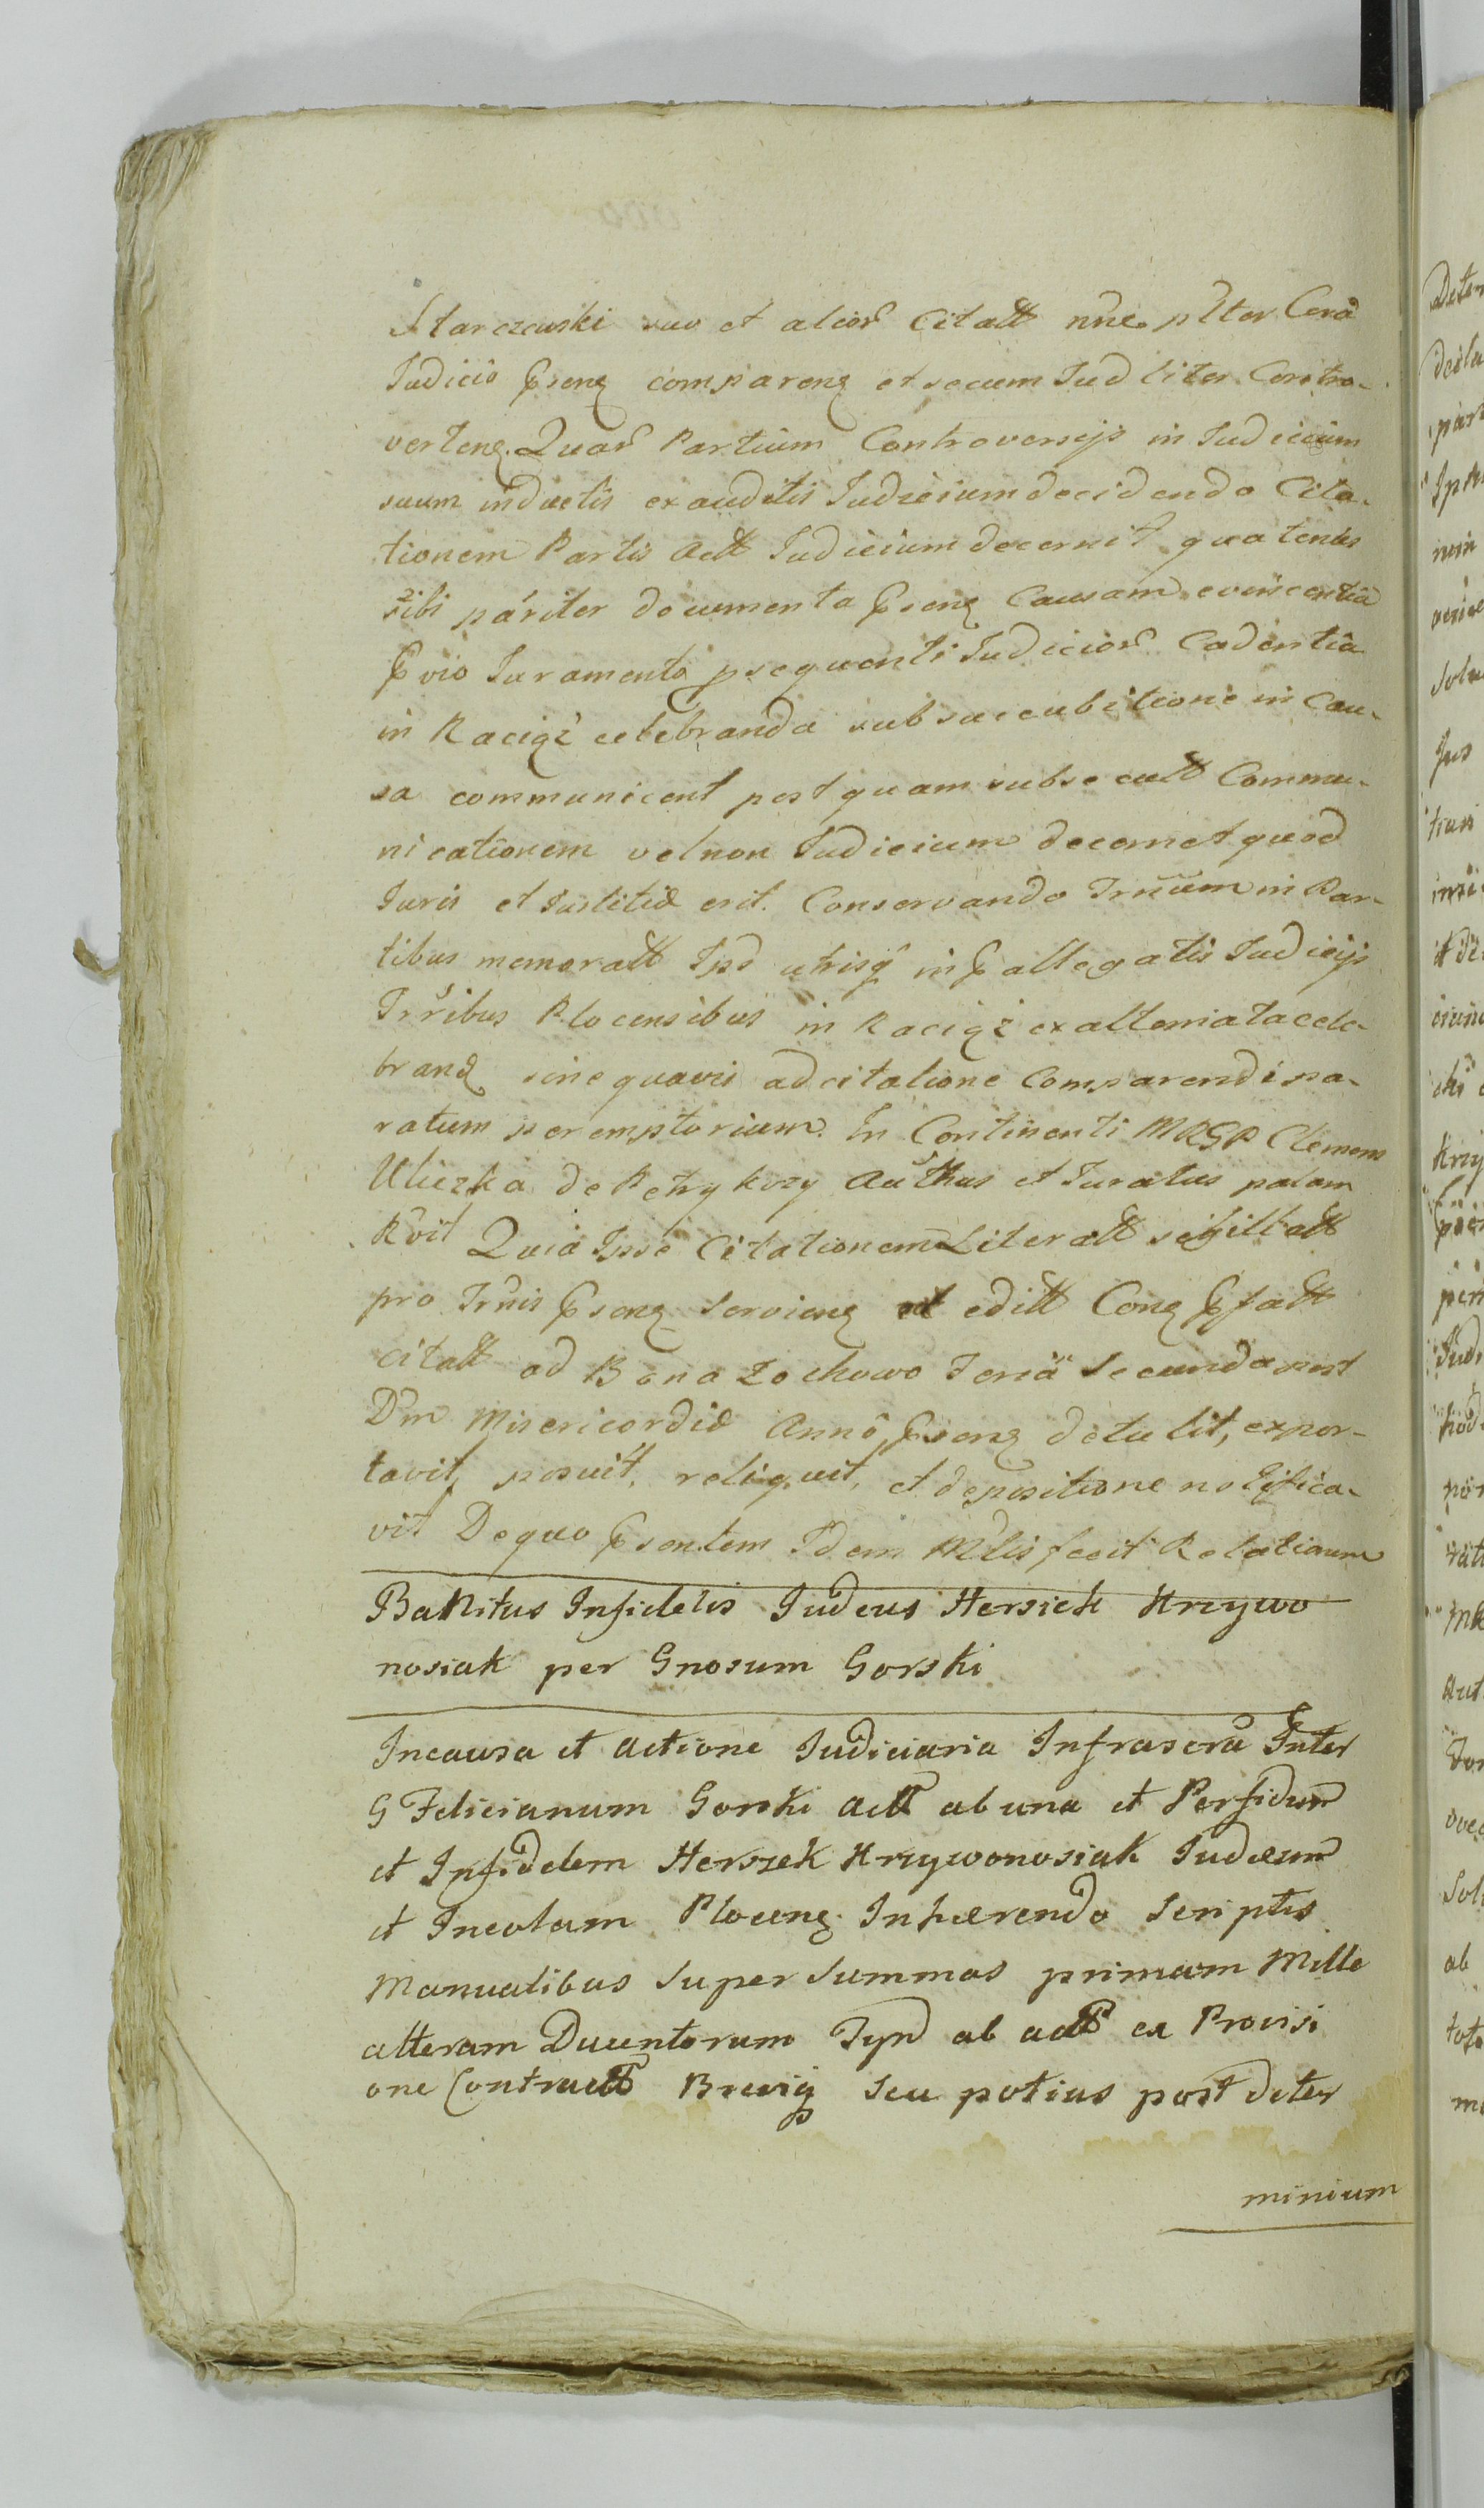 Starczewski suo et alior Citatt nne plter Corā
Judicio Psenz comparenz et secum Judliter Contro-
vertenz. Quar Partium Controversijs in Judicium
suum inductis exauditis Judicium decidendo Cita-
tionem Partis Actt Judicium decernit quatenus
sibi páriter documenta Psenz Causam evincentia
Pvio Juramento psequenti Judicior Cadentiâ
in Raciąż celebranda sub succubitione in Cau-
sa communicent post quam subsecutt Commu-
nicationem vel non Judicium decernet quod
Juris et Justitiæ erit. Conservando Trnum in Par-
tibus memoratt Ipś utrisq́ in Pallegatis Judicijs
Trribus Plocensibus in Raciąż ex alternata cele-
branđ sine quavis adcitatione Comparendi pa-
ratum peremptorium. In Continenti MRGP Clemens
Uliczka de Petrykozy Autħus et Juratus palam
Rvit Quia Ipse Citationem Literatt sigillatt
pro Trnis Psenz Servienz et editt Conz Pfatt
citatt ad Bona Zochowo Feriâ Secunda post
Dm̄ Misericordiæ Annô Psenz detulit, expor-
tavit, posuit, reliquit, et depositione notifica-
vit De quo Psentem Idem Mlis fecit Relationem
Banitus Infidelis Judeus Hersieck Krzywo
nosiak per Gnosum Gorski
Incausa et actione Judiciaria Infrascrā Inter
G Felicianum Gorski actt ab una et Perfidum
et Infidelem Herszek Krzywonosiak Judæum
et Incolam Plocenz Inhærendo Scriptis
Manualibus Super Summas primam Mille
alteram Ducentorum Tynđ ab actt ex Provisi
one Contractt Brevig Seu potius post deter
minium